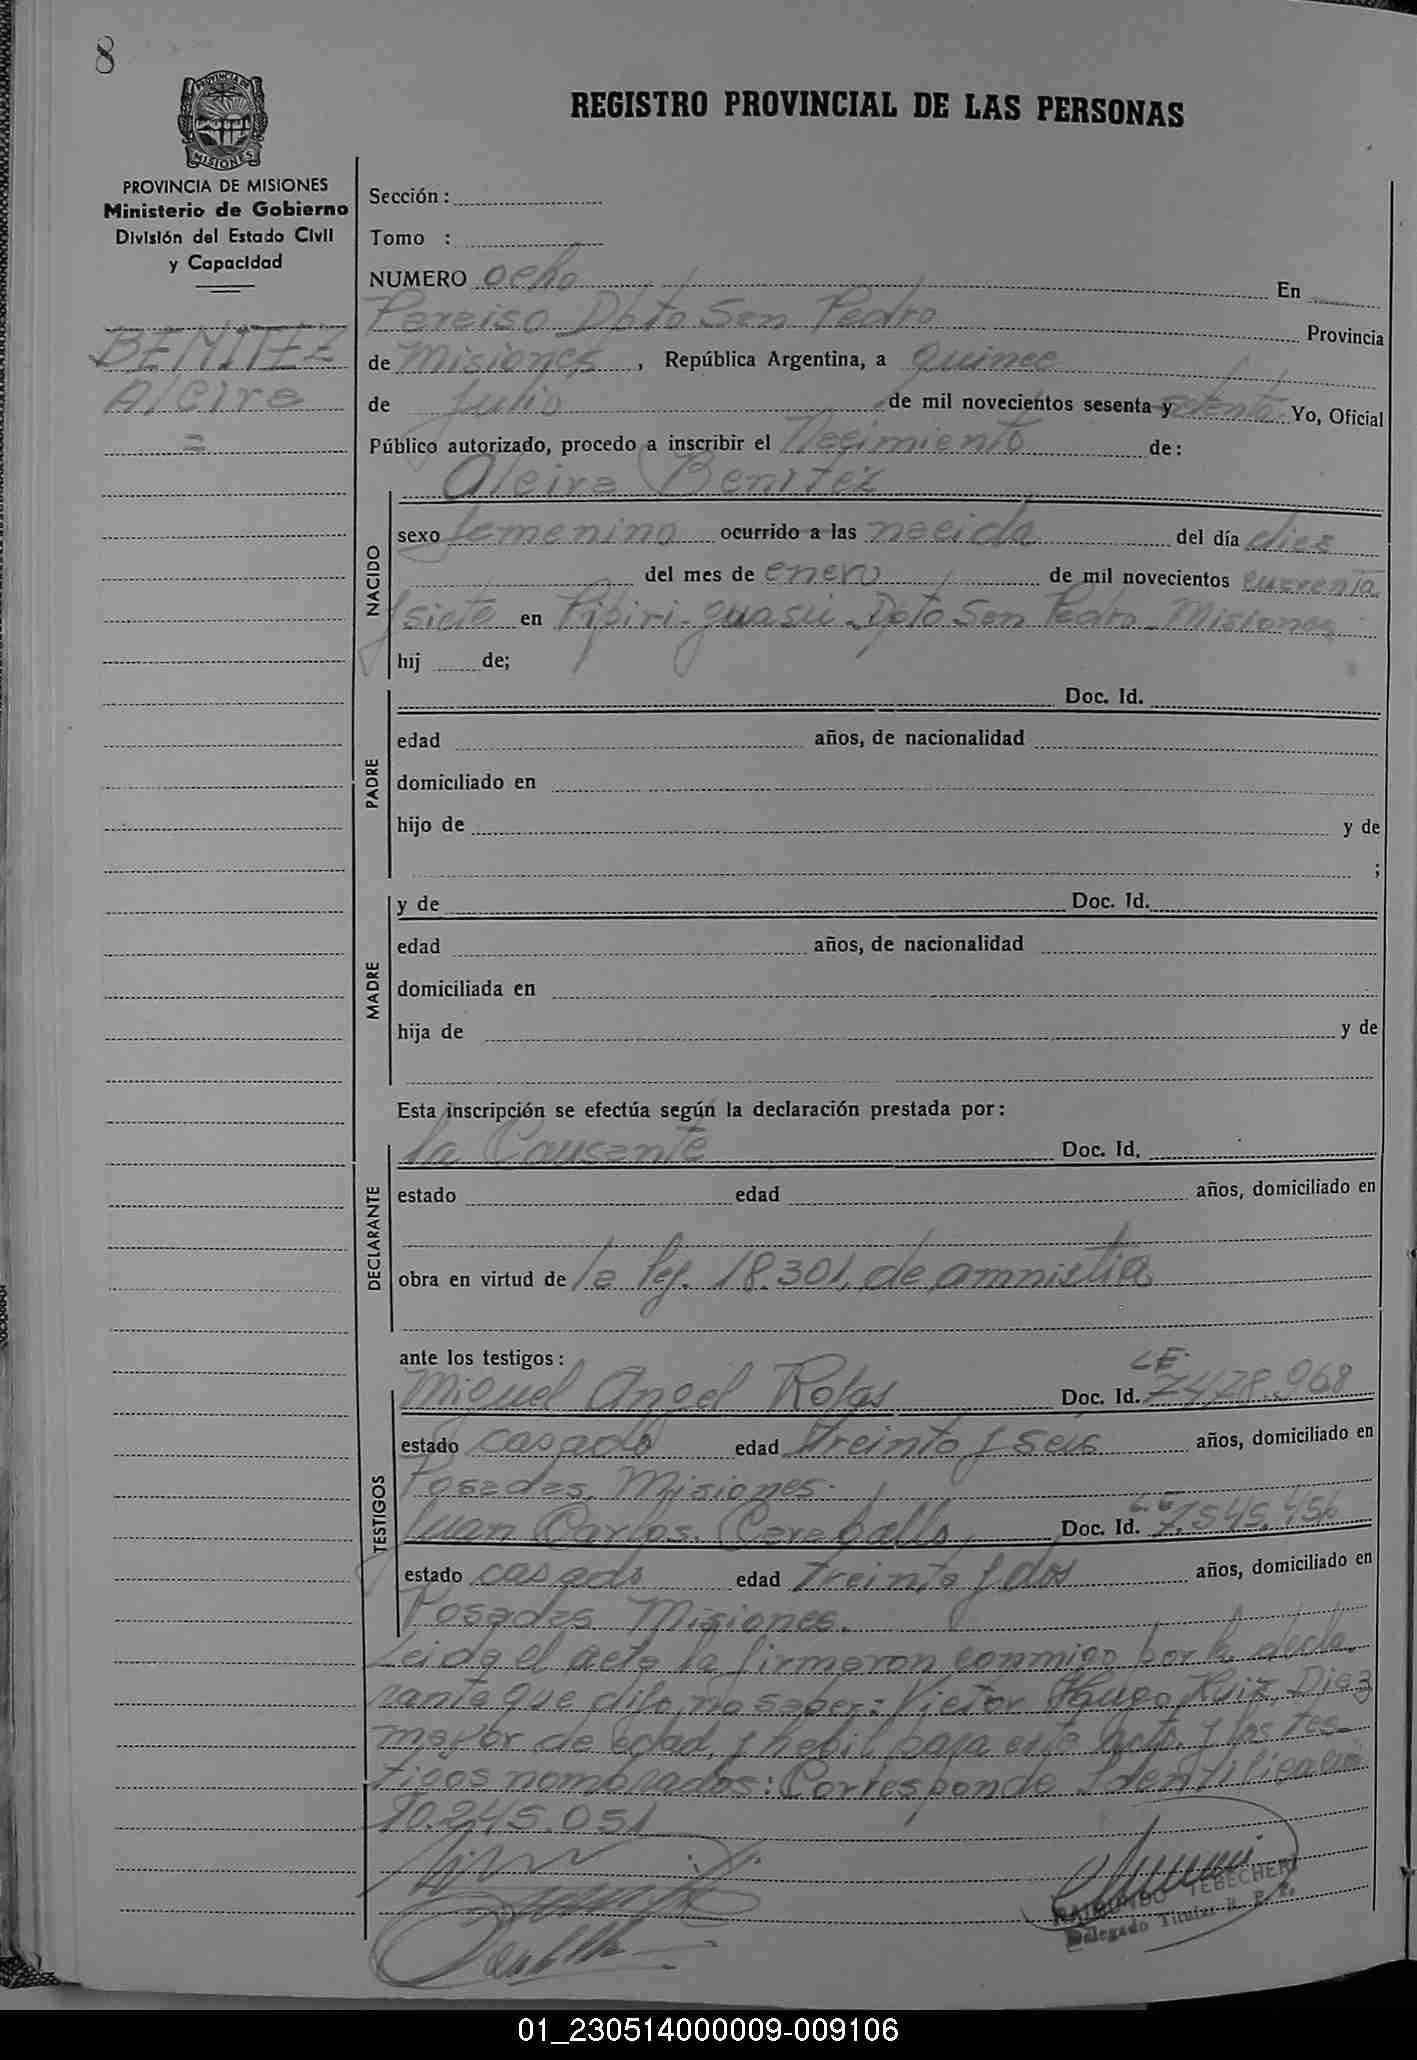 8
PROVINCIA DE
MISIONES
REGISTRO PROVINCIAL DE LAS PERSONAS
PROVINCIA DE MISIONES
Ministerio de Gobierno
División del Estado Civil
y Capacidad
BENITEZ
Alcira
=
Sección :
Tomo :
NUMERO ocho En
Paraiso Dpto San Pedro Provincia
de Misiones, República Argentina, a quince
de Julio de mil novecientos sesenta y setenta Yo, Oficial
Público autorizado, procedo a inscribir el Nacimiento de:
NACIDO
Alcira Benitez
sexo femenino ocurrido a las nacida del día diez
del mes de enero de mil novecientos cuarenta
y siete en Pipiri-guasú - Dpto San Pedro - Misiones
hij de;
PADRE
Doc. Id.
edad años, de nacionalidad
domiciliado en
hijo de y de
;
MADRE
y de Doc. Id.
edad años, de nacionalidad
domiciliada en
hija de y de
Esta inscripción se efectúa según la declaración prestada por:
DECLARANTE
la Causante Doc. Id.
estado edad años, domiciliado en
obra en virtud de la ley. 18.301, de amnistia
ante los testigos:
TESTIGOS
Miguel Angel Rojas Doc. Id. LE. 7478.068
estado casado edad treinta y seis años, domiciliado en
Posadas, Misiones.
Juan Carlos Caraballo, Doc. Id. LE 7.545.456
estado casado edad treinta y dos años, domiciliado en
Posadas Misiones.
Leida el acta la firmaron conmigo por la decla-
rante que dijo no saber: Victor Hugo Ruiz Diaz
mayor de edad, y habil para este acto, y los tes-
tigos nombrados: Corresponde Identificación
10.245.051
RAIMUNDO TEBECHERI
Delegado Titular R. P. P.
01_230514000009-009106